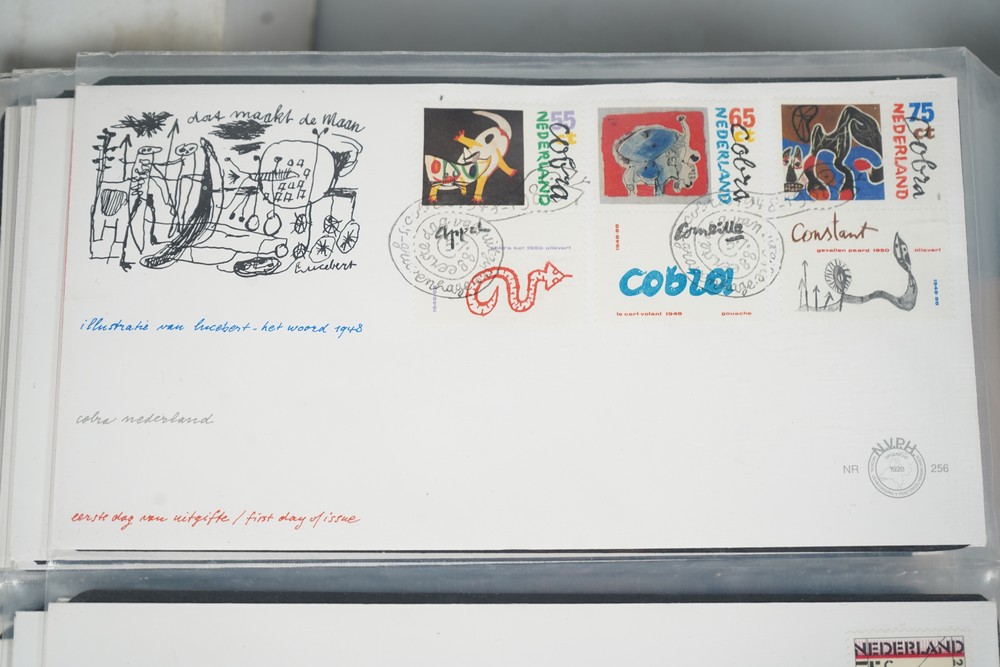 dat maakt de Maan
Lucebert
illustratie van lucebert - het woord 1948
cobra nederland
eerste dag van uitgifte / first day of issue
55
NEDERLAND
Cobra
65
NEDERLAND
Cobra
75
NEDERLAND
Cobra
Appel
1950 olieverf
Corneille
1948-88
cobra
le cerf-volant 1948 gouache
Constant
gevallen paard 1950 olieverf
1948-88
NR
NVPH
1928
256
NEDERLAND